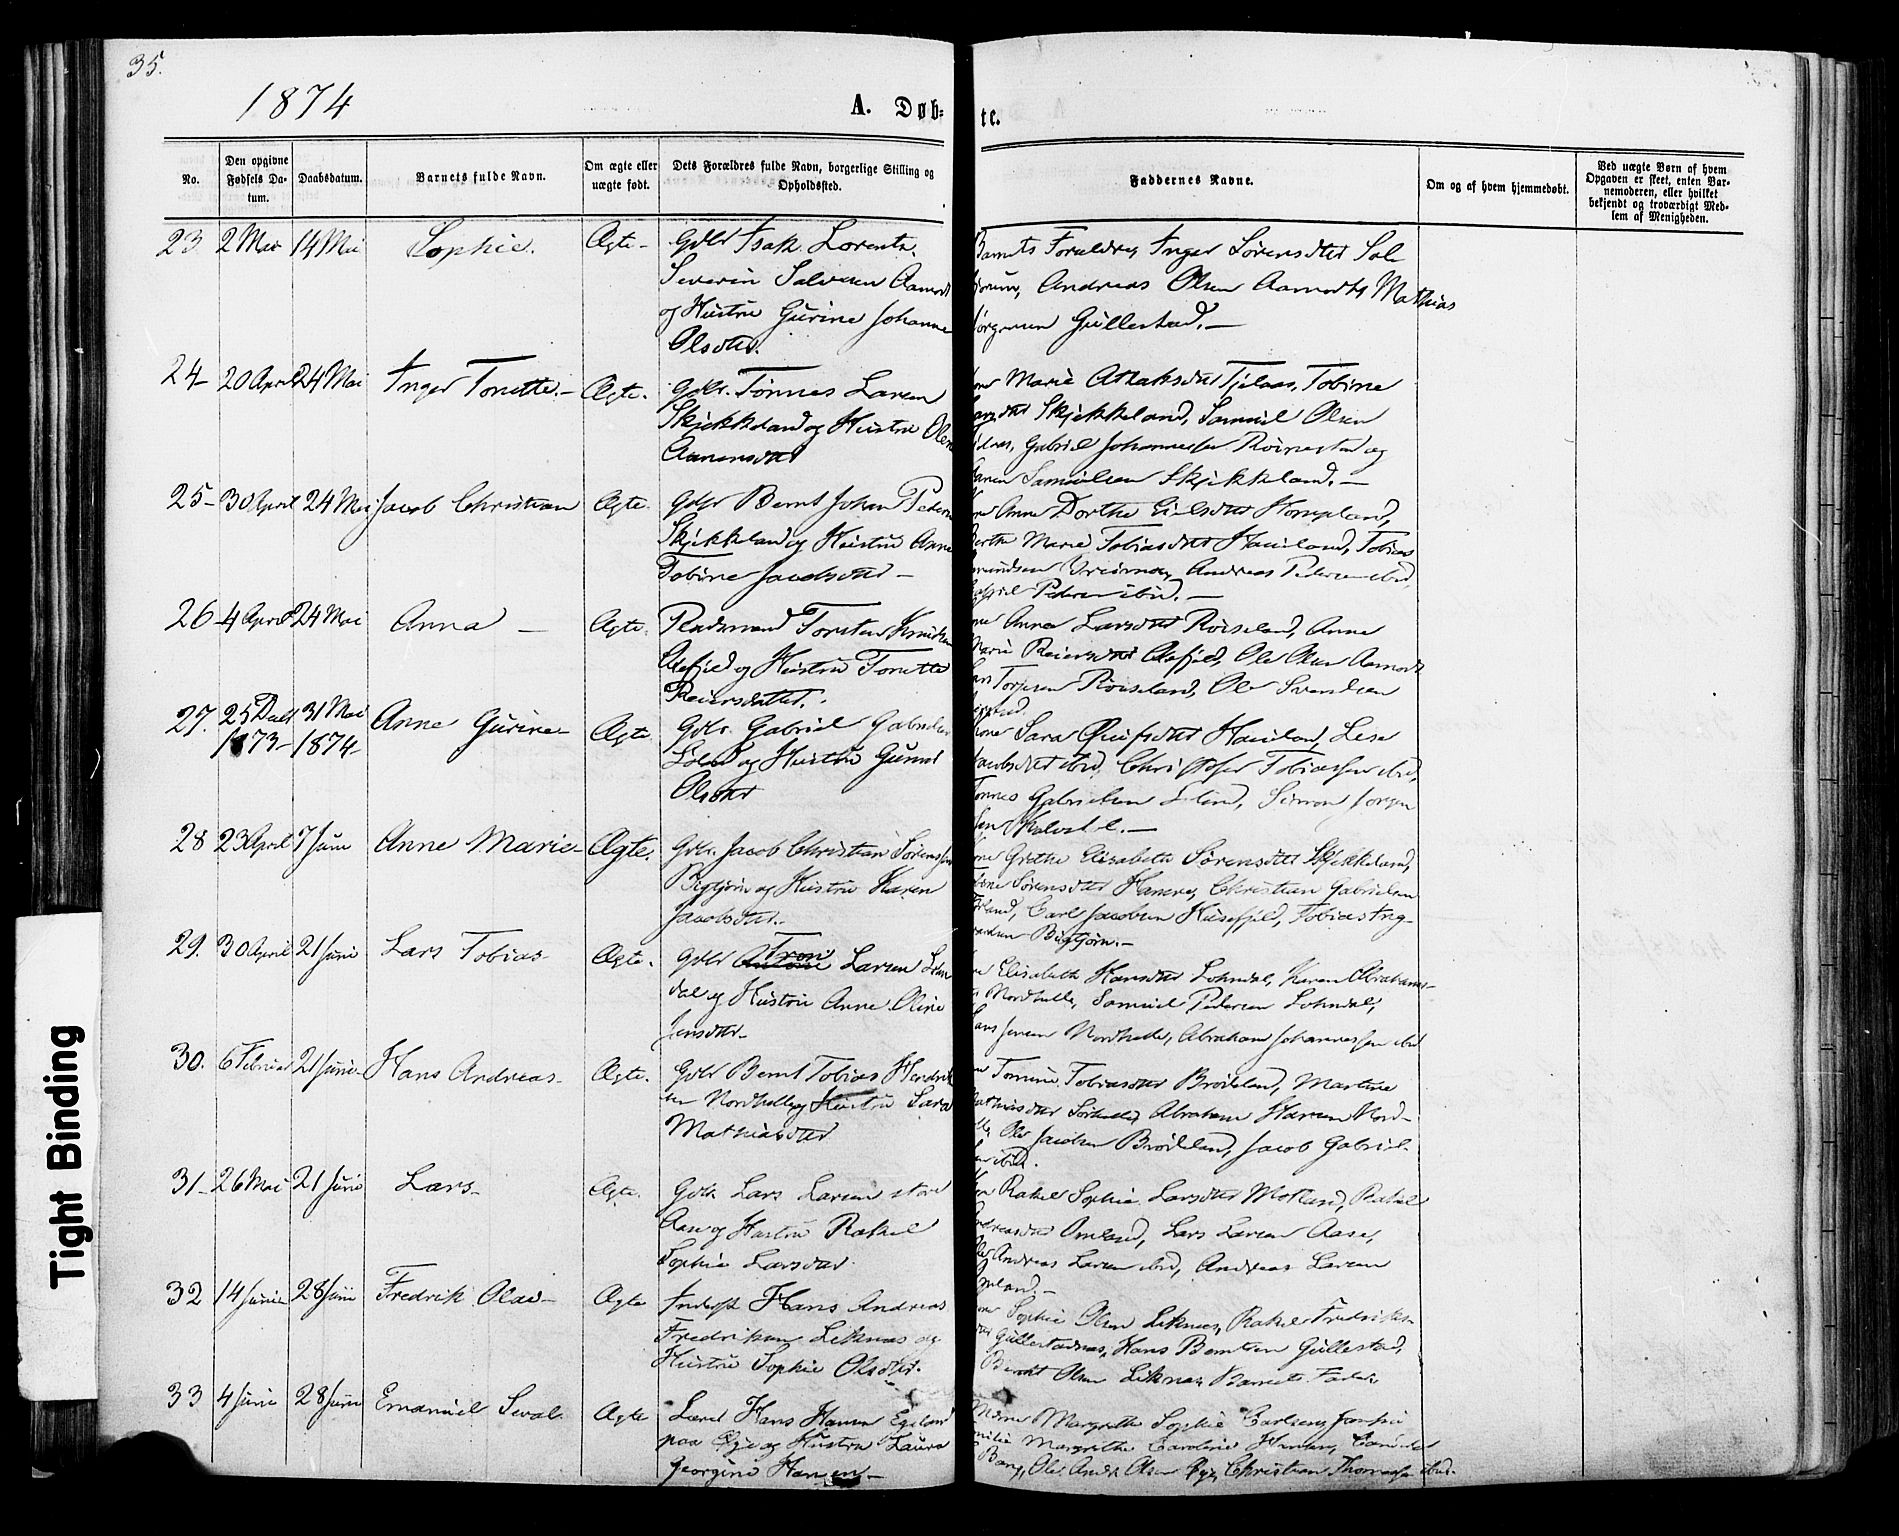 35.
1874
A. Døb=
te.
No.
Den opgivne Fødsels Da-tum.
Daabsdatum.
Barnets fulde Navn.
Om ægte eller uægte født.
Dets Forældres fulde Navn, borgerlige Stilling og Opholdssted.
Faddernes Navne.
Om og af hvem hjemmedøbt.
Ved uægte Børn af hvem Opgaven er skeet, enten Bar-nemoderen, eller hvilket bekjendt og troværdigt Med-lem af Menigheden.
23. 2 Mai 14 Mai Sophie. Ægte- Gdbr Isak Lorents
Severin Salvesen Aamodt
og Hustru Gurine Johanne
Olsdtr.
Barnets Forældre, Inger Sørensdtr Sol
Andreas Olsen Aamodt, Mathias
Jørgensen Gullestad.-
24- 20 April 24 Mai Inger Tonette.- Ægte. Gdbr. Tønnes Larsen
Skjekkeland og Hustru Olene
Aanensdtr
Marie Aslaksdtr Tjelaas, Tobine
Larsdtr Skjekkeland, Samuel Olsen
Gabriel Johannessen Roinestad og
Samuelsen Skjekkeland.-
25- 30 April 24 Mai Jacob Christian Ægte. Gdbr Bernt Johan Pedersen
Skjekkeland og Hustru Anne
Tobine Jacobsdtr -
Anne Dorthe Eielsdtr Homeland,
Berthe Marie Tobiasdtr Haueland, Tobias
Andreas Pedersen ibid,
Gabriel Pedersen ibid.-
26 4 April 24 Mai Anna - Ægte. Pladsmand Torsten Knudsen
og Hustru Tonette
Reiersdatter.
Anne Larsdtr Roiseland, Anne
Marie Reiersdtr Ole Olsen Aamodt
Lars Torjesen Roiseland, Ole Svendsen
27. 25 Decbr 1873- 31 Mai 1874- Anne Gurine- Ægte. Gdbr. Gabriel Gabrielsen
og Hustru Gunild
Olsdtr
Kone Sara Haueland, Lise
Jacobsdtr ibid, Christoffer Tobiassen ibid,
Tønnes Gabrielsen Simon Jørgen
28 23 April 7 Juni Anne Marie- Ægte. Gdbr. Jacob Christian Sørensen
Bigtjørn og Hustru Karen
Jacobsdtr.-
Grethe Elisabeth Sørensdtr Skjekkeland,
Sørensdtr Christian Gabrielsen
Carl Jacobsen Husefjeld, Tobias Ing-
Bigtjørn.-
29. 30 April 21 Juni Lars Tobias- Ægte. Gdbr Tron Larsen Lohn
dal og Hustru Anne Oline
Jensdtr.-
Elisabeth Hansdtr Lohndal, Karen Abrahams-
Nordhelle, Samuel Pedersen Lohndal,
Jensen Nordhelle, Abraham Johannessen ibid
30. 6 Februar 21 Juni- Hans Andreas- Ægte. Gdbr Bernt Tobias Hendrik
sen Nordhelle og Hustru Sara
Mathiasdtr
Tomine Tobiasdtr Broideland, Martine
Mathiasdtr Abraham Hansen Nord-
Ole Jacobsen Broideland, Jacob Gabriel-
ibid.
31- 26 Mai 21 Juni Lars- Ægte. Gdbr Lars Larsen store
Aase og Hustru Rakel
Sophie Larsdtr.
Rakel Sophie Larsdtr Motland, Rakel
Andreasdtr Omland, Lars Larsen Aase,
Ole Andreas Larsen ibid, Andreas Larsen
Omland.-
32 14 Juni 28 Juni Fredrik Olai- Ægte Inderst Hans Andreas
Fredriksen Leknes og
Hustru Sophie Olsdtr.
Sophie Olsen Leknes, Rakel Fredriks-
Gullestadnes, Hans Berntsen Gullestad,
Berndt Olsen Leknes, Barnets Fader.
33 4 Juni 28 Juni Emanuel Sevald Ægte Lærer Hans Hansen Egeland
paa Øye og Hustru Laura
Georgine Hansen-
Margrethe Sophie Carlsen,
Margrethe Caroline Hansen,
Bang, Ole Andr. Olsen Øye, Christian Thomassen ibid.
Tight Binding